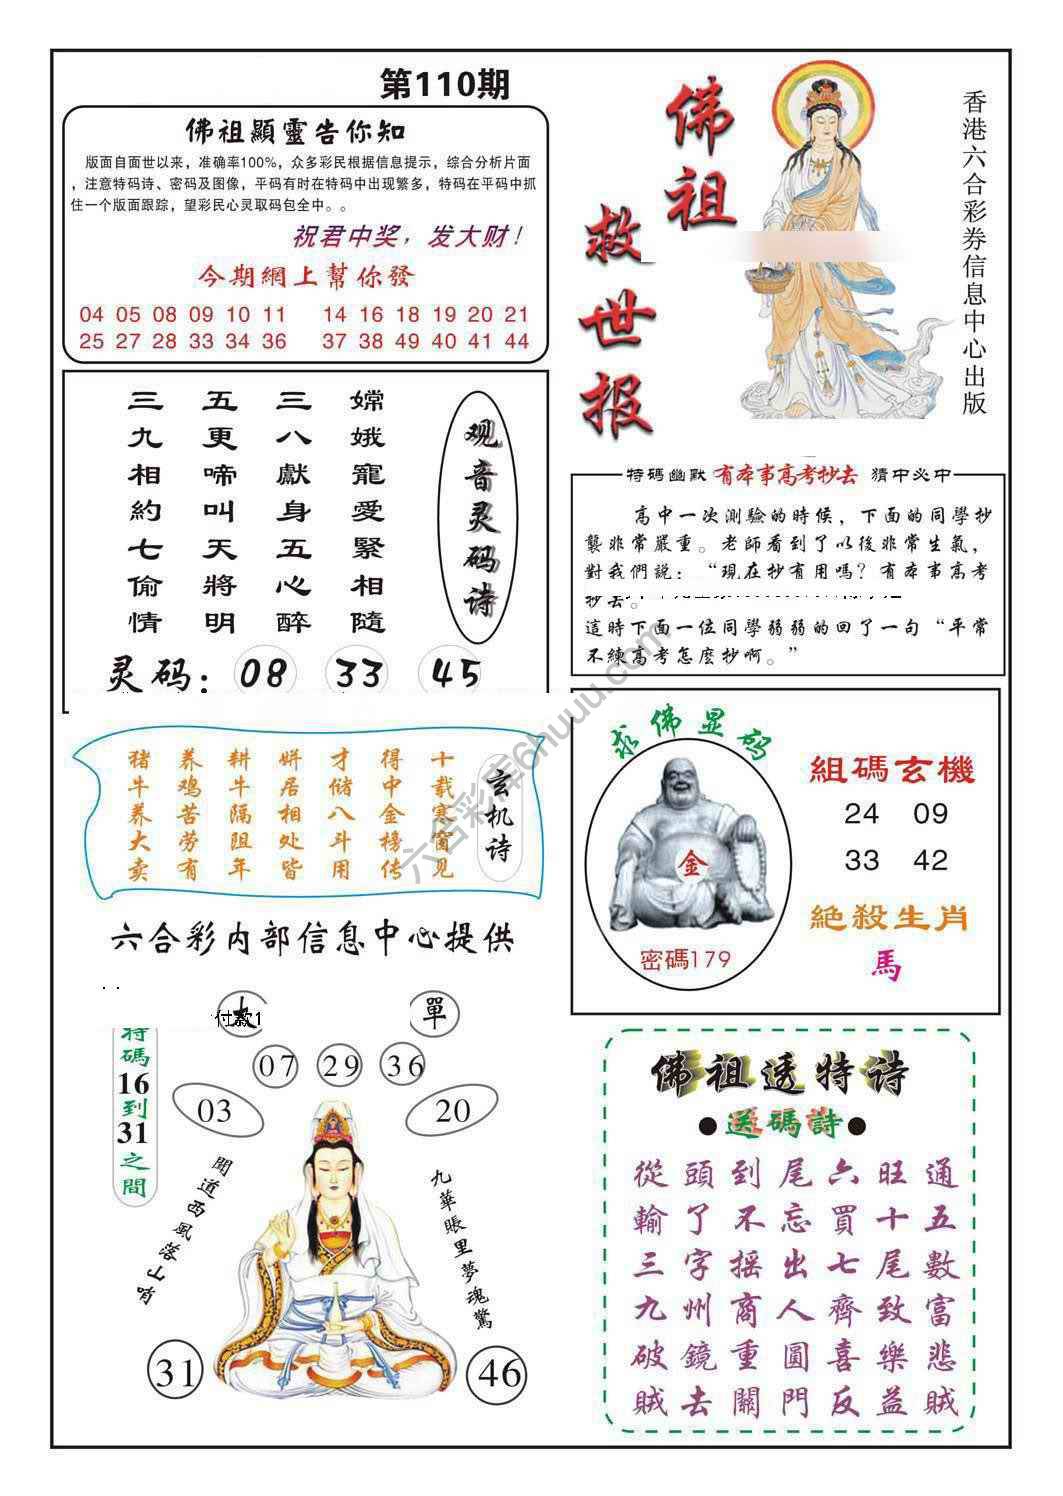 第110期
佛祖顯靈告你知
版面自面世以来，准确率100%，众多彩民根据信息提示，综合分析片面
，注意特码诗、密码及图像，平码有时在特码中出现繁多，特码在平码中抓
住一个版面跟踪，望彩民心灵取码包全中。。
祝君中奖，发大财！
今期網上幫你發
04 05 08 09 10 11 14 16 18 19 20 21
25 27 28 33 34 36 37 38 49 40 41 44
佛祖
救世报
香港六合彩券信息中心出版
观音灵码诗
嫦娥寵愛緊相隨
三八獻身五心醉
五更啼叫天將明
三九相約七偷情
灵码：08 33 45
特碼幽默 有本事高考抄去 猜中必中
高中一次測驗的時候，下面的同學抄
襲非常嚴重。老師看到了以後非常生氣，
對我們説：“現在抄有用嗎？有本事高考
抄去。
這時下面一位同學弱弱的回了一句“平常
不練高考怎麼抄啊。”
玄机诗
十载寒窗见
得中金榜传
才储八斗用
姘居相处皆
耕牛隔阻年
养鸡苦劳有
猪牛养大卖
六合彩内部信息中心提供
求佛显码
金
密碼179
組碼玄機
24 09
33 42
絶殺生肖
馬
大 單
付款1
特碼16到31之間
07 29 36
03 20
聞道西風落山哨
九華賬里夢魂驚
31 46
佛祖透特诗
●送碼詩●
從頭到尾六旺通
輸了不忘買十五
三字摇出七尾數
九州商人齊致富
破鏡重圓喜樂悲
賊去關門反益賊
六合彩库6huuu.com